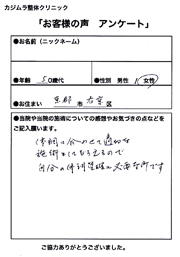 カジムラ整体クリニック
「お客様の声 アンケート」
●お名前(ニックネーム)
●年齢 50歳代 ●性別 男性 女性
●お住まい 京都市右京区
●当院や当院の施術についての感想やお気づきの点などを
ご記入願います。
体調に合わせて適切な
施術をしてもらえるので
自分の体調管理に大事な所です
ご協力ありがとうございました。